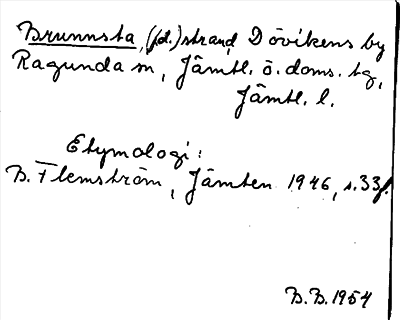 Brunnsta, (pl.) strand, Dövikens by
Ragunda sn, Jämtl. ö. doms. tg,
Jämtl. l.
Etymologi:
B. Flemström, Jämten 1946, s. 33f.
B.B. 1954